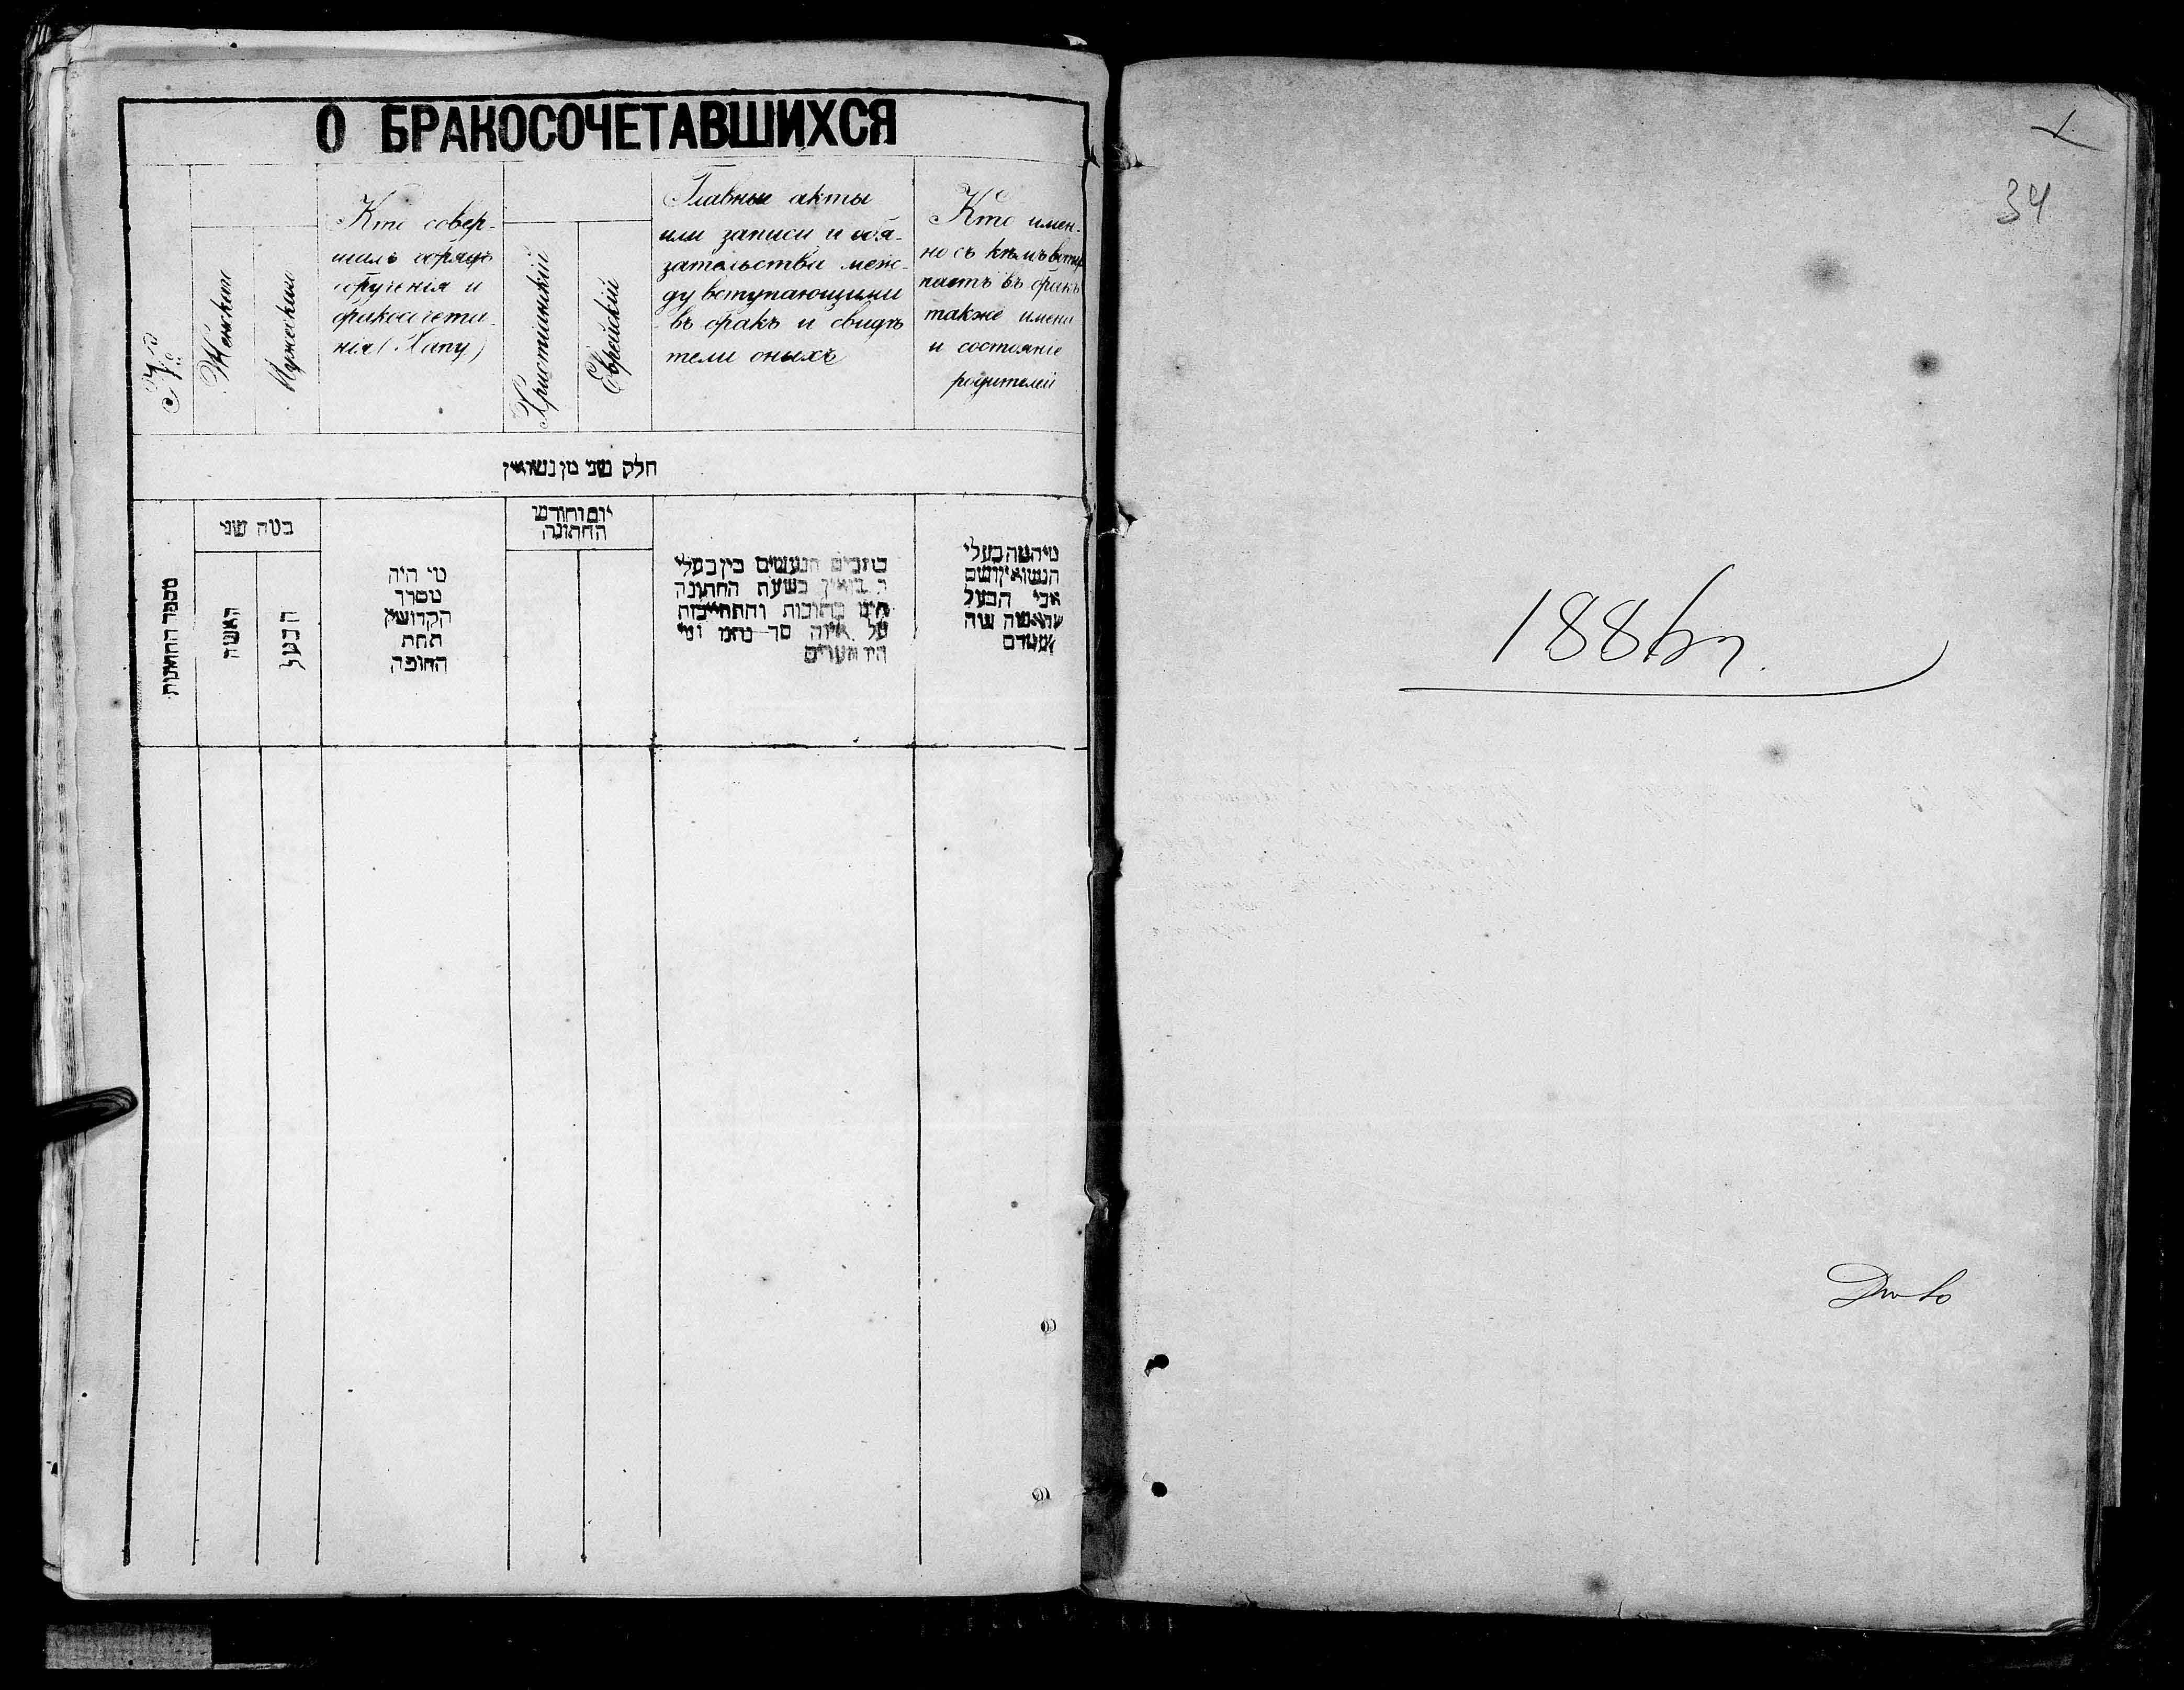 О БРАКОСОЧЕТАВШИХСЯ
№
Женскій
Мужескій
Кто совер-
шалъ обрядъ
обрученія и
бракосочета-
нія (Хапу)
Христіанскій
Еврейскій
Главные акты
или записи и обя-
зательства меж-
ду вступающими
въ бракъ и свидѣ
тели оныхъ
Кто имен-
но съ кѣмъ всту
паетъ въ бракъ
также имена
и состояніе
родителей
חלק שני מן נשואין
מספר החתונות
כמה שני
האשה
הבעל
מי היה
מסדר
הקדושין
תחת
החופה
יום וחודש
החתונה
הנעשים בין בעלי
בשעת החתונה
כתובות והתחייבות
על
מי המה בעלי
הנשואין ושם
אבי הבעל
34
1886 г.